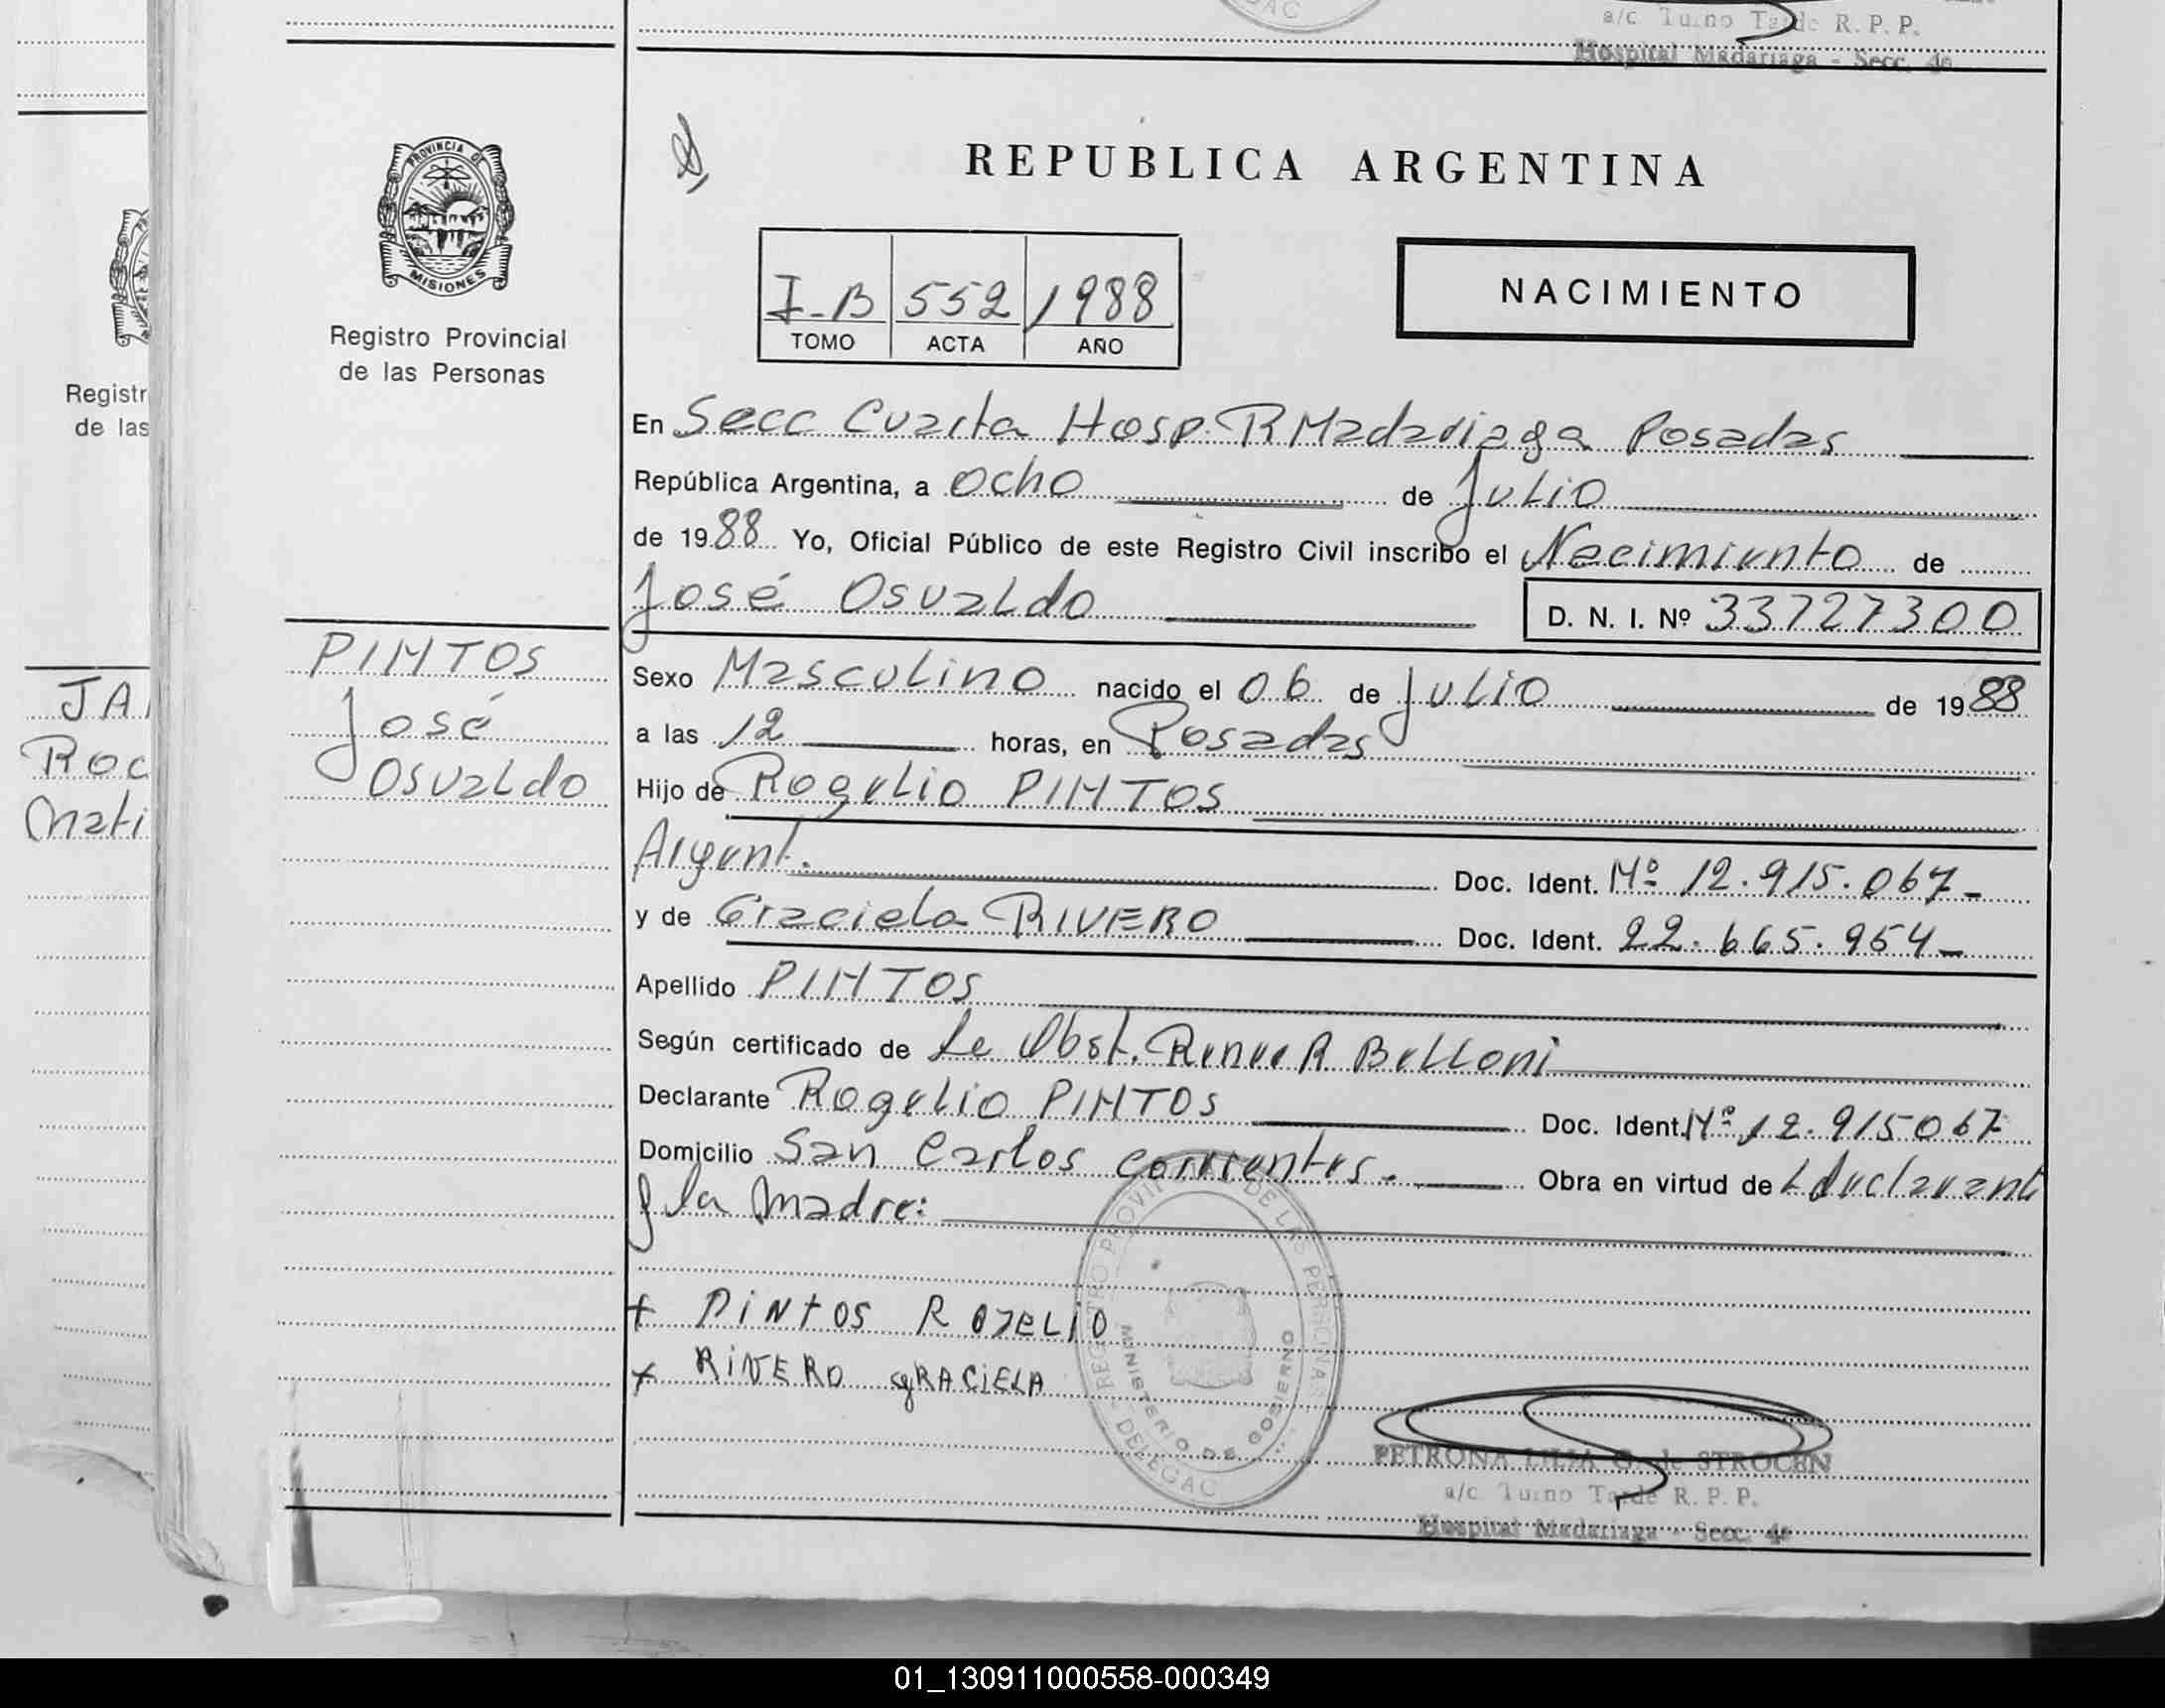 a/c. Turno Tarde R. P. P.
Hospital Madariaga - Secc. 4a
PROVINCIA DE
MISIONES
Registro Provincial
de las Personas
REPUBLICA ARGENTINA
I-B 552 1988
TOMO ACTA AÑO
NACIMIENTO
Registr
de las
En Secc Cuarta Hosp. R Madariaga Posadas
República Argentina, a ocho de Julio
de 1988 Yo, Oficial Público de este Registro Civil inscribo el Nacimiento de
José Osvaldo
D. N. I. Nº 33727300
PINTOS
José
Osvaldo
JA
Roc
Mati
Sexo Masculino nacido el 06 de Julio de 1988
a las 12 horas, en Posadas
Hijo de Rogelio PINTOS
Argent. Doc. Ident. Nº 12.915.067-
y de Graciela RIVERO Doc. Ident. 22.665.954-
Apellido PINTOS
Según certificado de La Obst. Renee R Belloni
Declarante Rogelio PINTOS Doc. Ident. Nº 12.915067
Domicilio San Carlos Corrientes. Obra en virtud de L declarant
y la Madre:
+ PINTOS ROJELIO
x RIVERO GRACIELA
REGISTRO PROVI DE LAS PERSONAS
MINISTERIO DE GOBIERNO
DELEGAC
PETRONA LILIA G. de STROCEN
a/c Turno Tarde R. P. P.
Hospital Madariaga - Secc. 4a
01_130911000558-000349